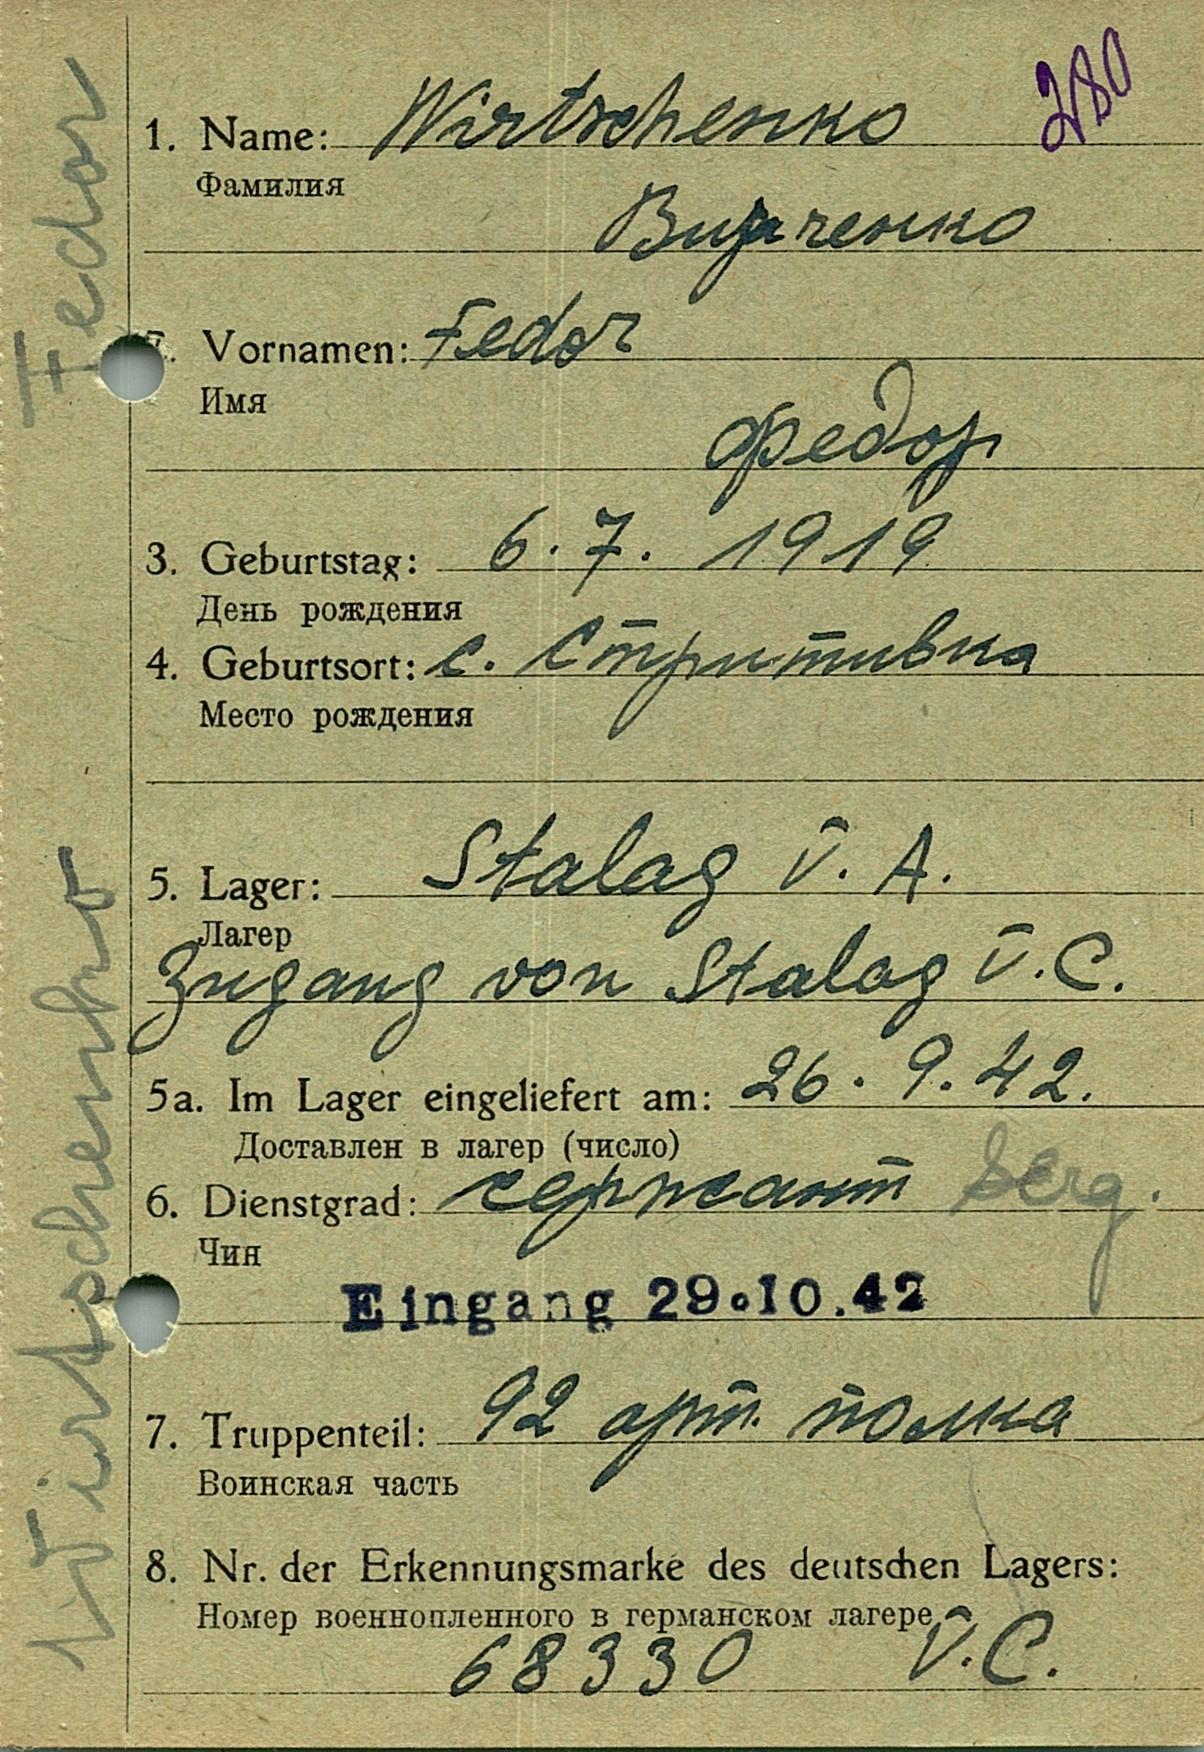 280
1. Name: Wirtschenko
Фамилия
Вирченко
2. Vornamen: Fedor
Имя
Федор
3. Geburtstag: 6. 7. 1919
День рождения
4. Geburtsort: с. Стритивка
Место рождения
5. Lager: Stalag V. A.
Лагер
Zugang von Stalag V. C.
5a. Im Lager eingeliefert am: 26. 9. 42.
Доставлен в лагер (число)
6. Dienstgrad: сержант Serg.
Чин
Eingang 29.10.42
7. Truppenteil: 92 арт. полка
Воинская часть
8. Nr. der Erkennungsmarke des deutschen Lagers:
Номер военнопленного в германском лагере
68330 V. C.
Wirtschenko Fedor